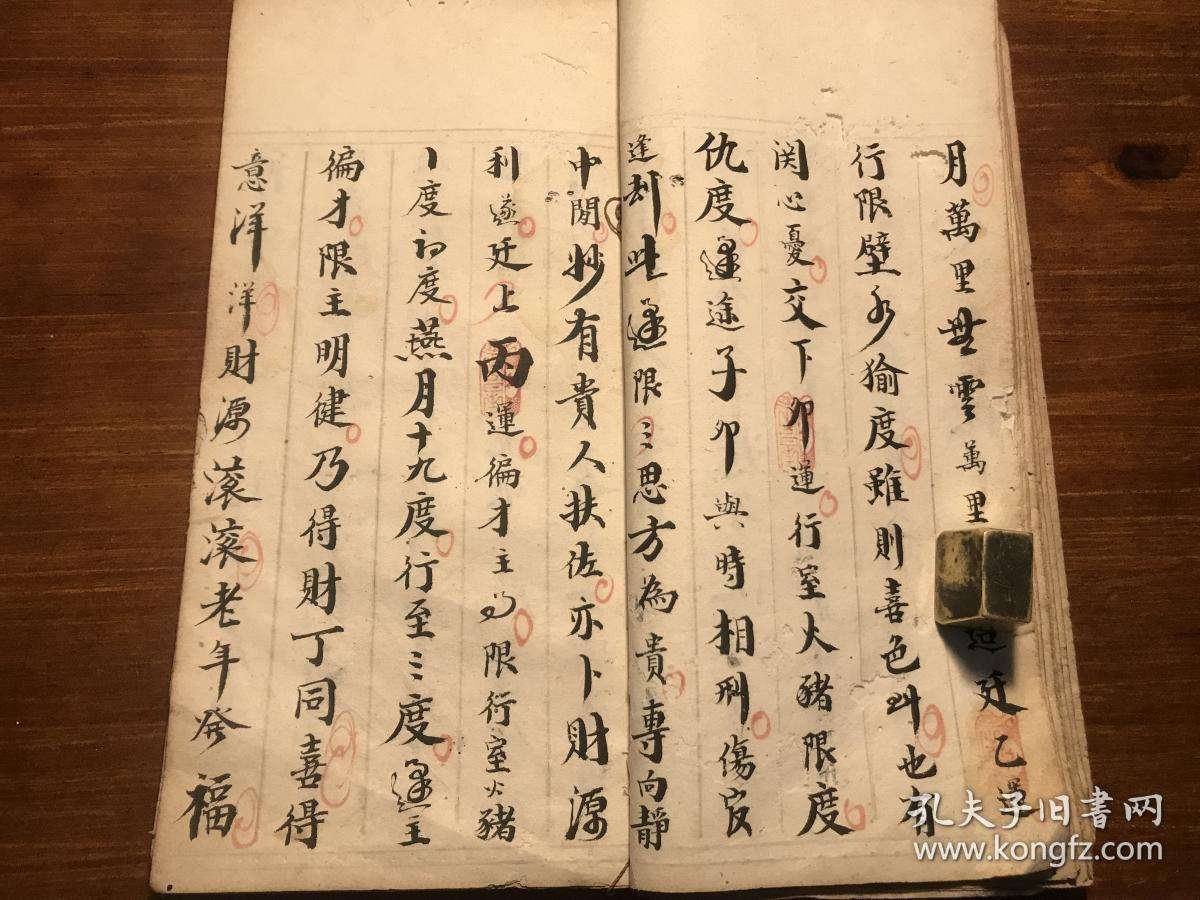 月萬里無雲萬里廷乙運
行限壁水㺄度雖則喜色斗也有
関心憂交下卯運行室火豬限度
仇度逢途子卯與時相刑傷官
逢刦此逢限三思方為貴專向靜
中閒妙有貴人扶佐亦卜財源
利遂廷上丙運偏才主限行室火豬
度初度燕月十九度行至三度逢主
偏才限主明健乃得財丁同喜得
意洋洋財源滾滾老年發福
孔夫子旧書网
www.kongfz.com